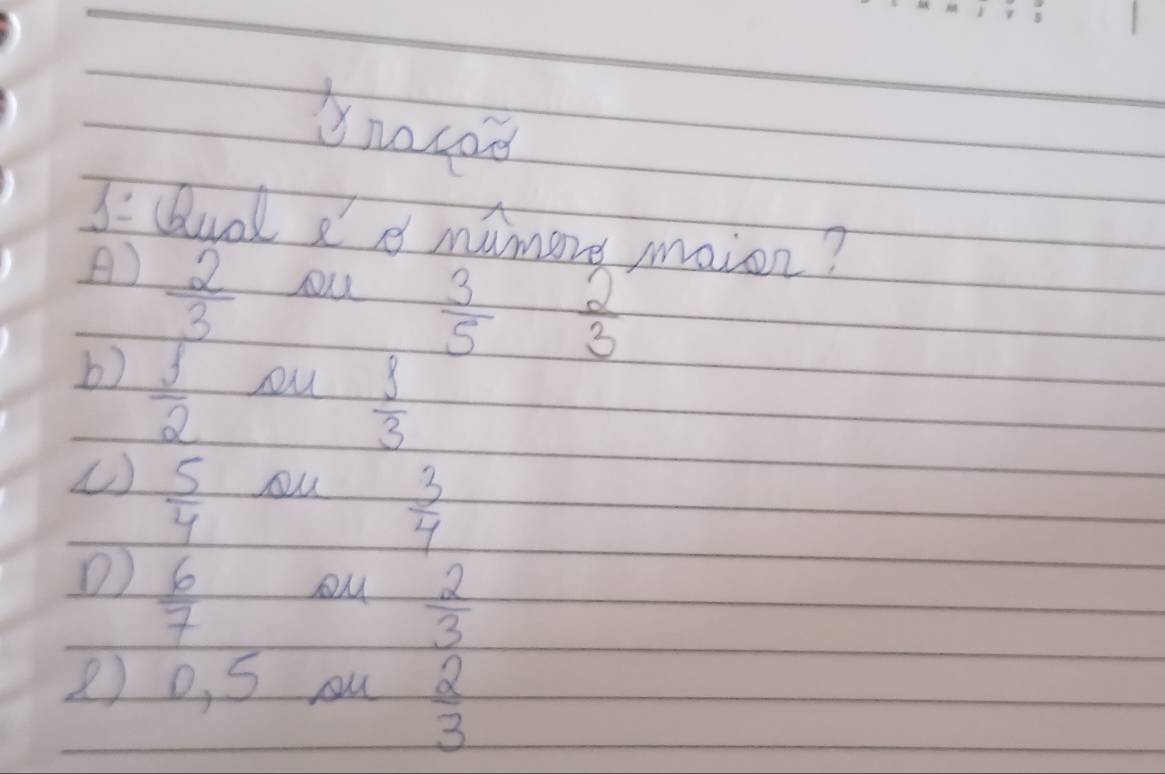 Fração
1- Qual é o número maior?
A) 2/3 ou 3/5 2/3
b) 1/2 ou 1/3
c) 5/4 ou 3/4
D) 6/7 ou 2/3
e) 0,5 ou 2/3